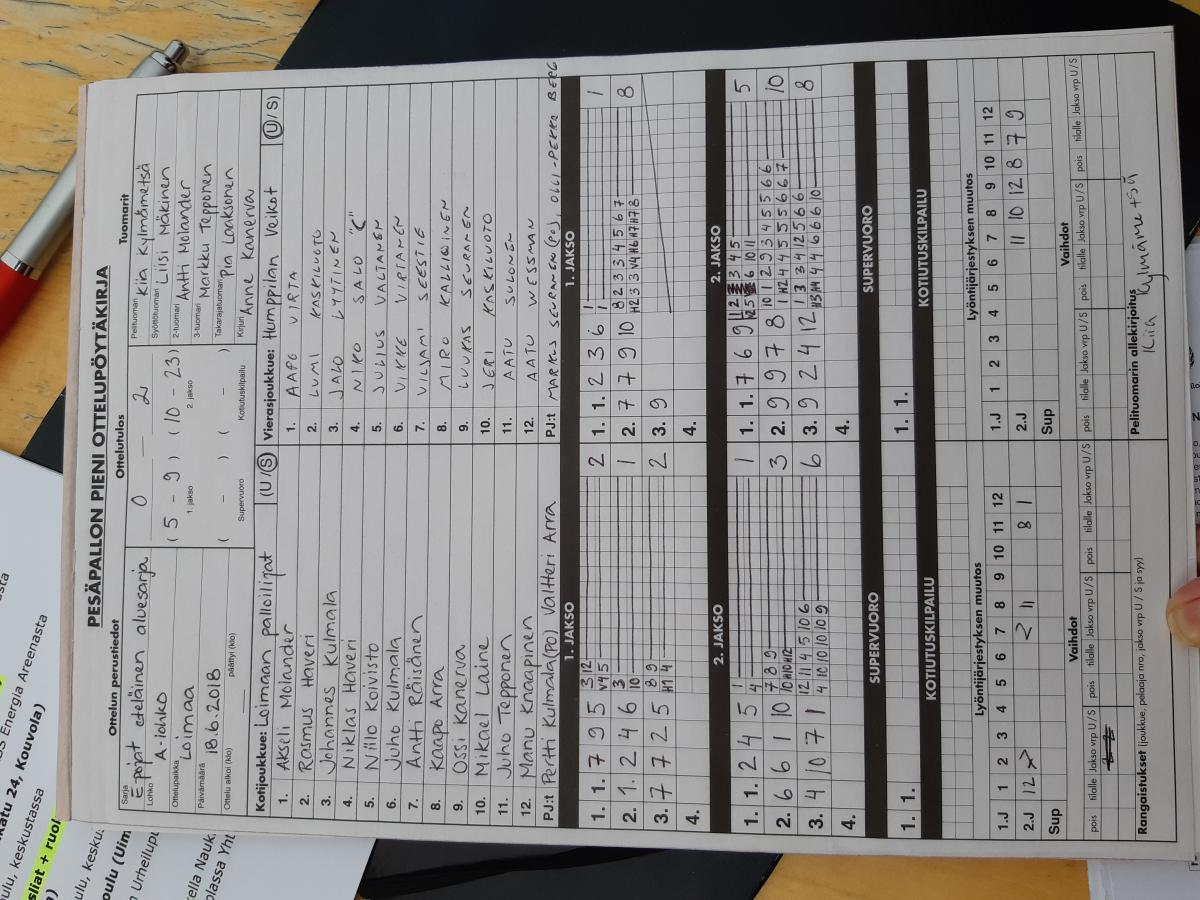 PESÄPALLON PIENI OTTELUPÖYTÄKIRJA
Ottelun perustiedot
Ottelutulos
Tuomarit
Sarja E-pojat eteläinen aluesarja
Lohko A-lohko
Ottelupaikka Loimaa
Päivämäärä 18.6.2018
Ottelu alkoi (klo)
päättyi (klo)
0 – 2
( 5 – 9 ) ( 10 – 23 )
1. jakso 2. jakso
( – ) ( – )
Supervuoro Kotiutuskilpailu
Pelituomari Kiia Kylmämetsä
Syöttötuomari Liisi Mäkinen
2-tuomari Antti Molander
3-tuomari Markku Tepponen
Takarajatuomari Pia Laaksonen
Kirjuri Anne Kanerva
Kotijoukkue: Loimaan palloilijat (U/S)
1. Akseli Molander
2. Rasmus Haveri
3. Johannes Kulmala
4. Niklas Haveri
5. Niilo Koivisto
6. Juho Kulmala
7. Antti Räisänen
8. Kaapo Arra
9. Ossi Kanerva
10. Mikael Laine
11. Juho Tepponen
12. Manu Knaapinen
PJ:t Pertti Kulmala (PO) Valtteri Arra
Vierasjoukkue: Humppilan Veikot (U/S)
1. AAPO VIRTA
2. LUMI KASKILUOTO
3. JALO LYYTINEN
4. NIKO SALO "C"
5. JULIUS VALTANEN
6. VIKKE VIRTANEN
7. VILJAMI SEESTIE
8. MIRO KALLIOINEN
9. LUUKAS SEURANEN
10. JERI KASKILUOTO
11. AATU SUONEN
12. AATU WESSMAN
PJ:t MARKUS SEURANEN (PO), OLLI-PEKKA BERG
1. JAKSO
1. 1. 7 9 5 2
3 12
V4 5
2. 1. 2 4 6 1
3
10
3. 7 7 2 5 2
8 9
H1 4
4.
1. JAKSO
1. 1. 2 3 6 1
1
1
2. 7 7 9 10 8
8 2 3 3 4 5 6 7
H2 3 3 V4 H6 H7 H7 8
3. 9
4.
2. JAKSO
1. 1. 2 4 5 1
1
4
2. 6 6 1 10 3
7 8 9
10 H10 H12
3. 4 10 7 1 6
12 11 4 5 10 6
4 10 10 10 10 9
4.
2. JAKSO
1. 1. 7 6 9 5
2. 9 9 7 8 10
10 1 1 2 9 3 4 5 5 6 6
3. 9 2 4 12 8
4.
SUPERVUORO
1. 1.
SUPERVUORO
1. 1.
KOTIUTUSKILPAILU
KOTIUTUSKILPAILU
Lyöntijärjestyksen muutos
1.J 1 2 3 4 5 6 7 8 9 10 11 12
2.J 12 7 2 11 8 1
Sup
Lyöntijärjestyksen muutos
1.J 1 2 3 4 5 6 7 8 9 10 11 12
2.J 11 10 12 8 7 9
Sup
Vaihdot
pois tilalle Jakso vrp U/S pois tilalle Jakso vrp U/S pois tilalle Jakso vrp U/S
Vaihdot
pois tilalle Jakso vrp U/S pois tilalle Jakso vrp U/S pois tilalle Jakso vrp U/S
Rangaistukset (joukkue, pelaaja nro, jakso, vrp U / S ja syy)
Pelituomarin allekirjoitus
Kiia Kylmämetsä
katu 24, Kouvola)
oulu, keskustassa